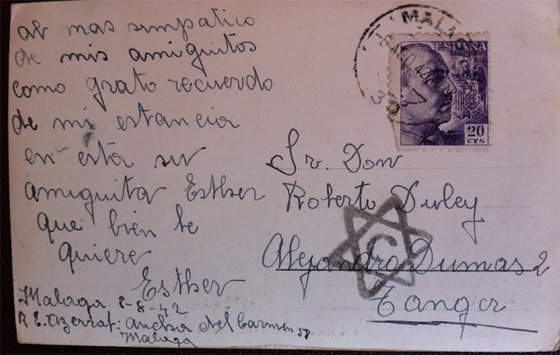 al mas simpatico
de mis amiguitos
como grato recuerdo
de mi estancia
en esta su
amiguita Esther
que bien te
quiere
Esther
Malaga 8-8-42
R E. Azerrat: Ancha del Carmen 58
Malaga
MALA
ESPAÑA
20
CTS
Sr. Don
Roberto Duley
Alejandro Dumas 2
Tanger
C